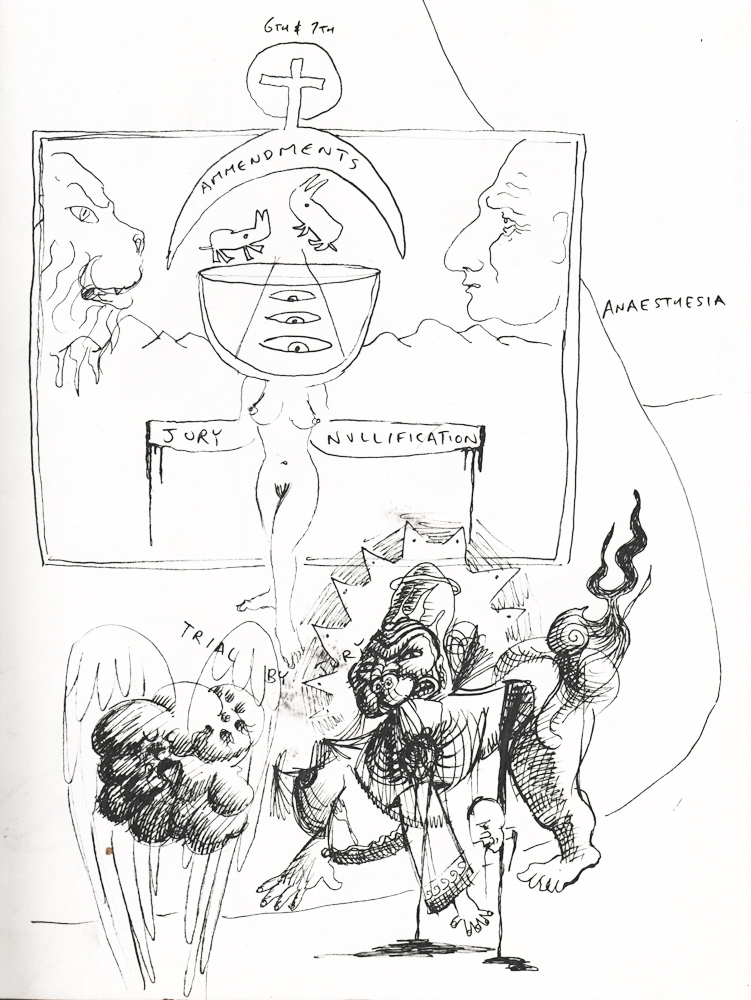 6TH & 7TH
AMMENDMENTS
ANAESTHESIA
JURY NULLIFICATION
TRIAL BY JURY